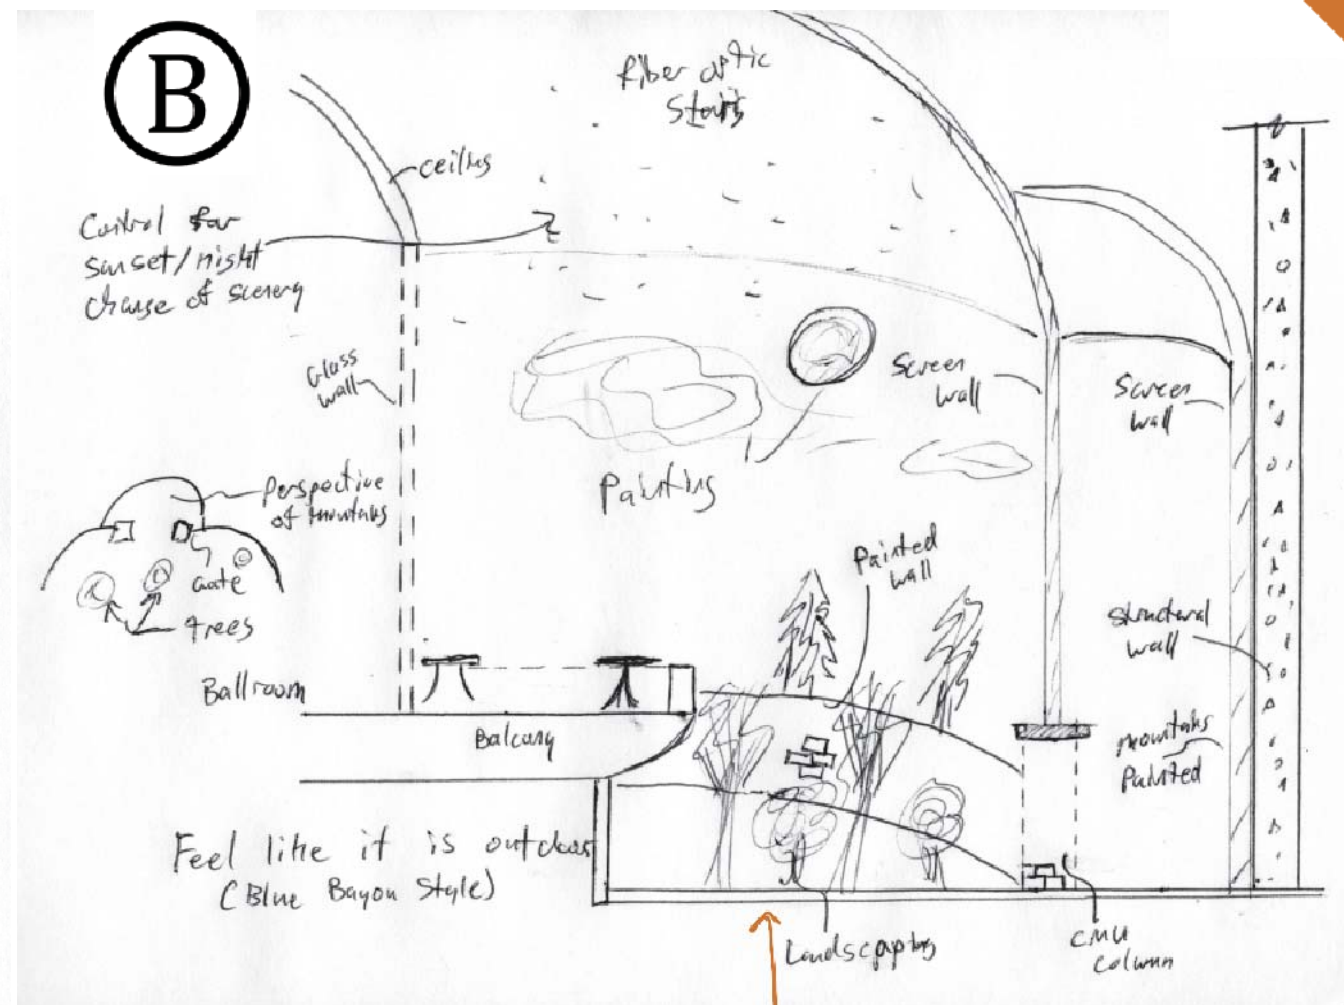 B
Fiber optic
Stars
ceiling
Control for
sunset/night
change of scenery
Glass
wall
Screen
wall
Screen
wall
Painting
perspective
of mountains
gate
trees
Painted
wall
Structural
wall
Ballroom
Balcony
mountains
Painted
Feel like it is outdoors
(Blue Bayou Style)
Landscaping
CMU
Column